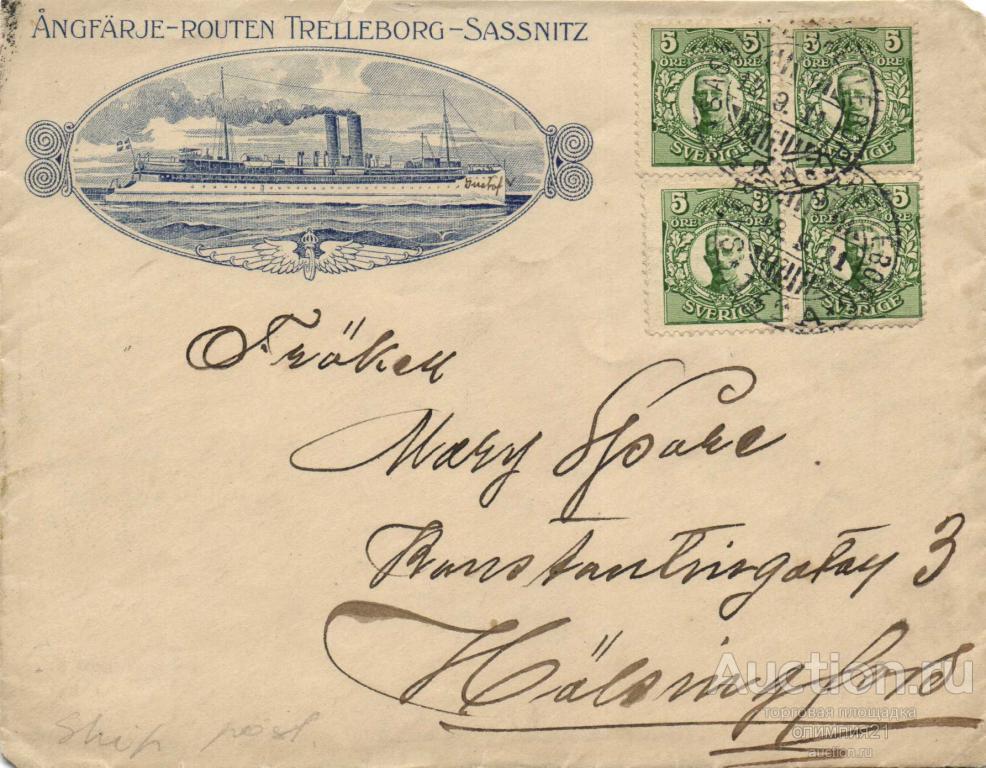 ÅNGFÄRJE-ROUTEN TRELLEBORG-SASSNITZ
Gustaf V
5 5
ÖRE ÖRE
SVERIGE
5 5
ÖRE ÖRE
SVERIGE
5
ÖRE ÖRE
SVERIGE
5
ÖRE
SVERIGE
Fröken
Mary Spare
Konstantinsgatan 3
Hälsingfors
Ship post.
Auction.ru
торговая площадка
олимпия21
auction.ru